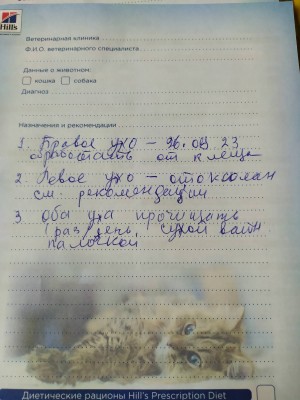 Hill's
Ветеринарная клиника
Ф.И.О. ветеринарного специалиста
Данные о животном:
кошка собака
Диагноз
Назначения и рекомендации
1. Правое ухо – 26.09.23
обработать от клеща
2. Левое ухо – отоксолан
см. рекомендации
3. оба уха прочищать
1 раз/день, сухой ватн
палочкой
Диетические рационы Hill's Prescription Diet